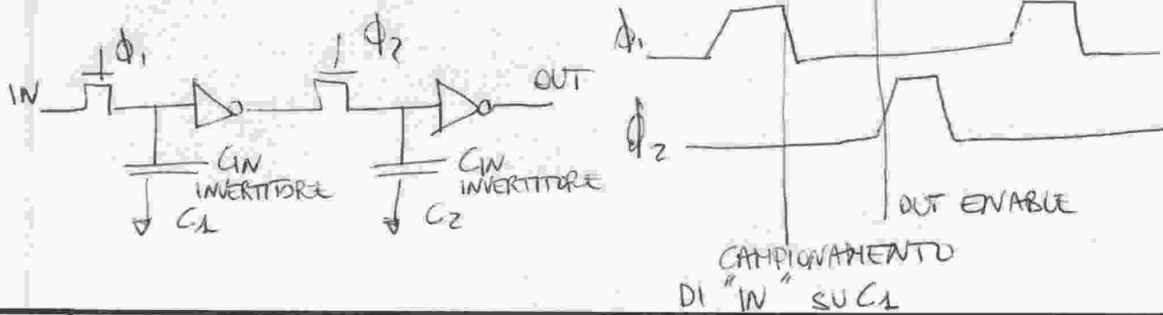 ϕ₁
ϕ₂
IN
OUT
CIN
INVERTITORE
C1
CIN
INVERTITORE
C2
ϕ₁
ϕ₂
OUT ENABLE
CAMPIONAMENTO
DI "IN" SU C1